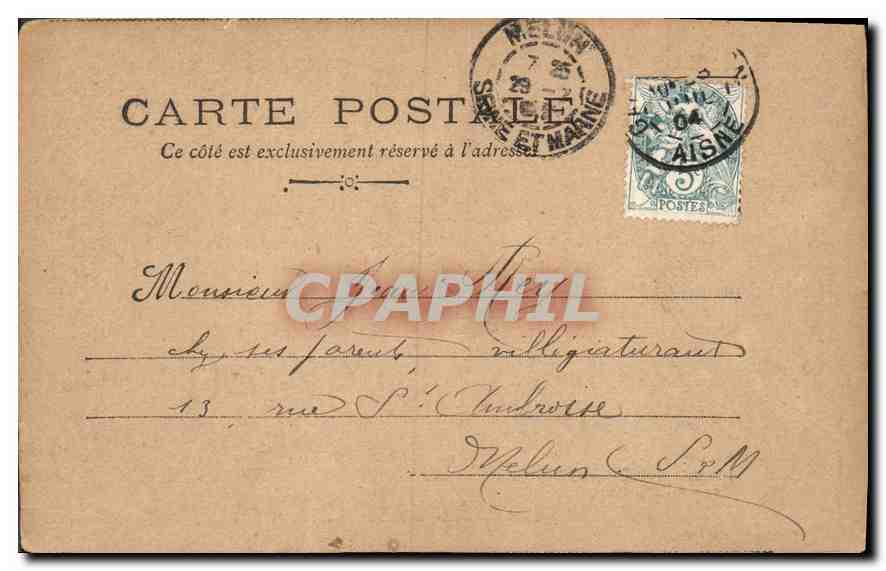 MELUN
7 25
29
SEINE ET MARNE
04
AISNE
5
POSTES
CARTE POSTALE
Ce côté est exclusivement réservé à l'adresse
CPAPHIL
Monsieur Jean
chez ses parents villégiaturant
13 rue St Ambroise
Melun S & M